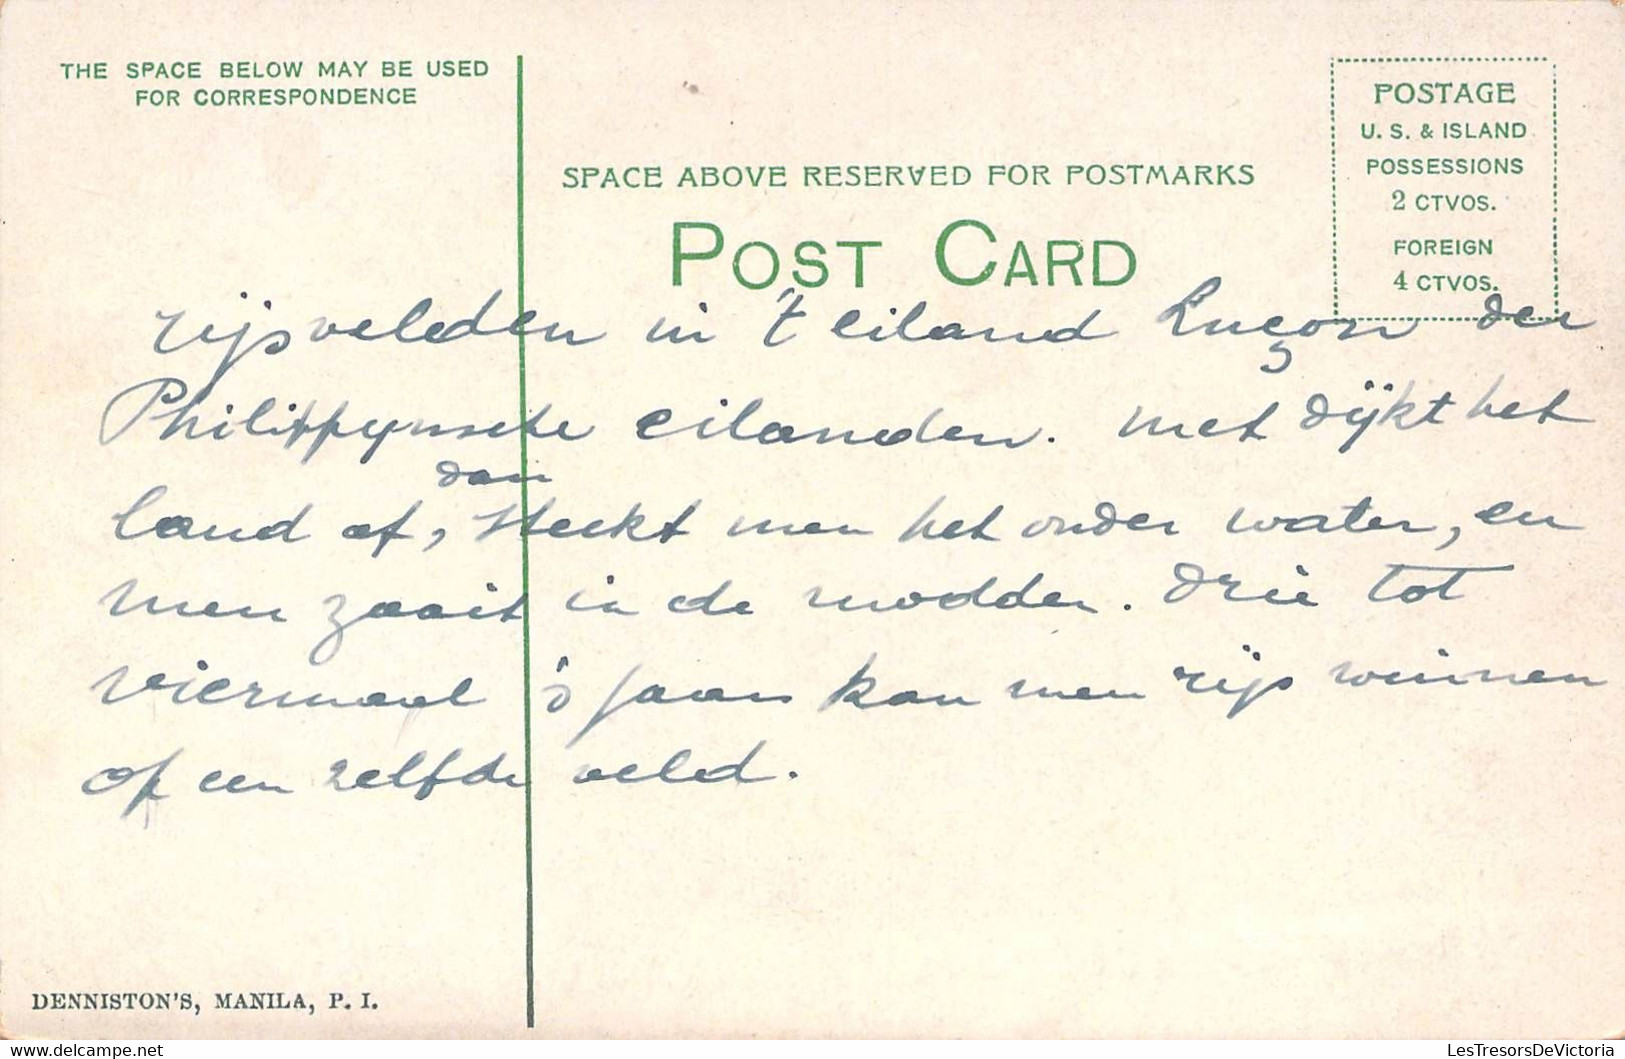 THE SPACE BELOW MAY BE USED
FOR CORRESPONDENCE
POSTAGE
U. S. & ISLAND
POSSESSIONS
2 CTVOS.
FOREIGN
4 CTVOS.
SPACE ABOVE RESERVED FOR POSTMARKS
POST CARD
rijsvelden in 't eiland Luçon der
Philippynsche eilanden. Men dijkt het
land af, dan steekt men het onder water, en
men zaait in de modder. Drie tot
viermaal 's jaars kan men rijs winnen
op een zelfde veld.
DENNISTON'S, MANILA, P. I.
LesTresorsDeVictoria